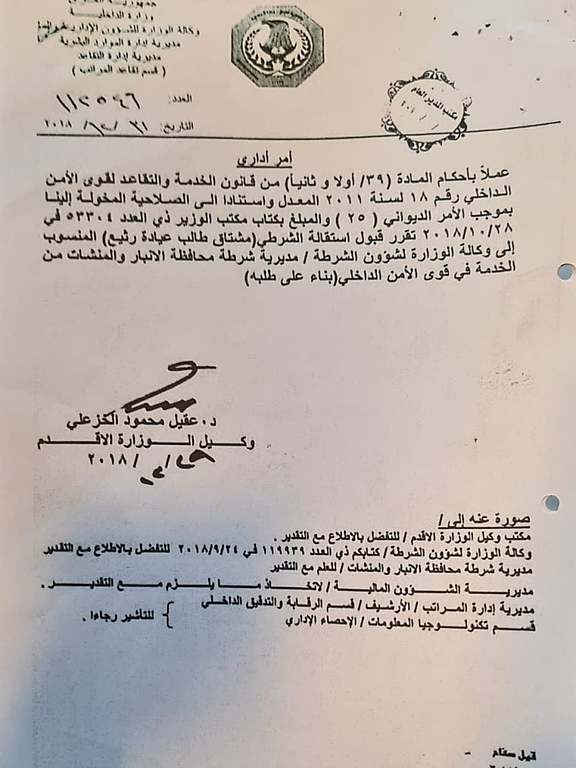 جمهورية العراق
وزارة الداخلية
وكالة الوزارة للشؤون الادارية والمالية
مديرية إدارة الموارد البشرية
مديرية إدارة التقاعد
( قسم تقاعد المراتب )
العدد: ١١٢٥٤٦
التاريخ: ٣١ / ١٢ / ٢٠١٨
مكتب المدير العام
أمر أداري
عملاً بأحكام المادة (٣٩/ أولا و ثانياً) من قانون الخدمة والتقاعد لقوى الأمن
الداخلي رقم ١٨ لسنة ٢٠١١ المعدل واستنادا الى الصلاحية المخولة إلينا
بموجب الأمر الديواني ( ٢٥ ) والمبلغ بكتاب مكتب الوزير ذي العدد ٥٣٣٠٤ في
٢٠١٨/١٠/٢٨ تقرر قبول استقالة الشرطي(مشتاق طالب عيادة رئيع) المنسوب
إلى وكالة الوزارة لشؤون الشرطة / مديرية شرطة محافظة الانبار والمنشات من
الخدمة في قوى الأمن الداخلي(بناء على طلبه)
د. عقيل محمود الخزعلي
وكيل الوزارة الاقدم
٢٩ / ١٢ / ٢٠١٨
صورة عنه إلى /
مكتب وكيل الوزارة الاقدم / للتفضل بالاطلاع مع التقدير .
وكالة الوزارة لشؤون الشرطة / كتابكم ذي العدد ١١٩٩٣٩ في ٢٠١٨/٩/٢٤ للتفضل بالاطلاع مع التقدير
مديرية شرطة محافظة الانبار والمنشات / للعلم مع التقدير
مديرية الشؤون المالية / لاتخاذ ما يلزم مع التقدير .
مديرية إدارة المراتب / الأرشيف / قسم الرقابة والتدقيق الداخلي
قسم تكنولوجيا المعلومات / الإحصاء الإداري } للتأشير رجاءا .